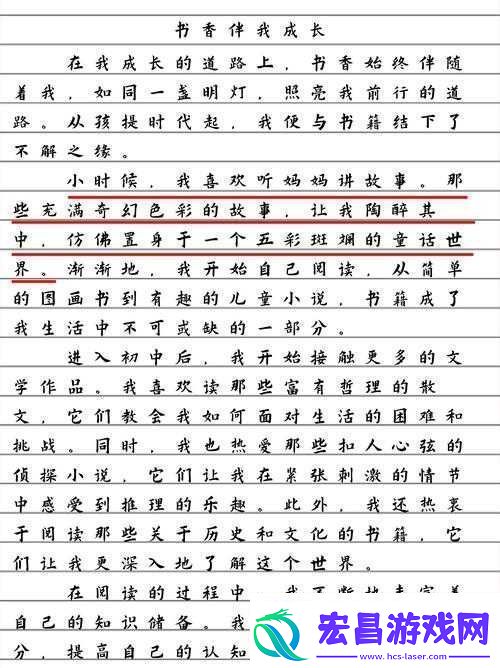 书香伴我成长
在我成长的道路上，书香始终伴随
着我，如同一盏明灯，照亮我前行的道
路。从孩提时代起，我便与书籍结下了
不解之缘。
小时候，我喜欢听妈妈讲故事。那
些充满奇幻色彩的故事，让我陶醉其
中，仿佛置身于一个五彩斑斓的童话世
界。渐渐地，我开始自己阅读，从简单
的图画书到有趣的儿童小说，书籍成了
我生活中不可或缺的一部分。
进入初中后，我开始接触更多的文
学作品。我喜欢读那些富有哲理的散
文，它们教会我如何面对生活的困难和
挑战。同时，我也热爱那些扣人心弦的
侦探小说，它们让我在紧张刺激的情节
中感受到推理的乐趣。此外，我还热衷
于阅读那些关于历史和文化的书籍，它
们让我更深入地了解这个世界。
在阅读的过程中
自己的知识储备。我
分，提高自己的认知
宏昌游戏网
www.hcs-laser.com